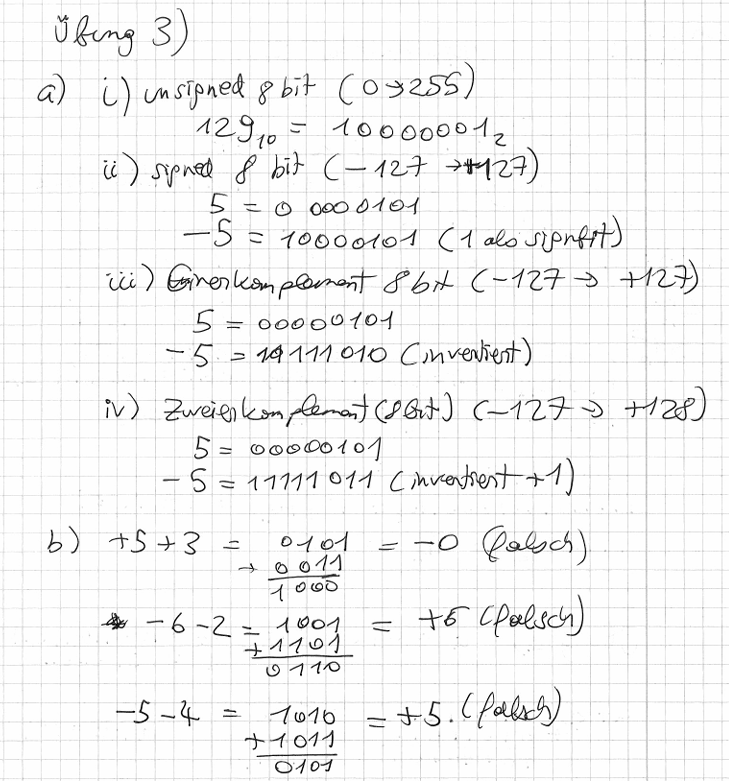 Übung 3)
a) i) unsigned 8 bit (0→255)
129₁₀ = 10000001₂
ii) signed 8 bit (-127 → +127)
5 = 0 0000101
-5 = 10000101 (1 als signbit)
iii) Einerkomplement 8 bit (-127 → +127)
5 = 00000101
-5 = 11111010 (invertiert)
iv) Zweierkomplement (8bit) (-127 → +128)
5 = 00000101
-5 = 11111011 (invertiert +1)
b) +5+3 = 0101 = -0 (falsch)
+ 0011
1000
-6-2 = 1001 = +6 (falsch)
+1101
0110
-5-4 = 1010 = +5. (falsch)
+1011
0101